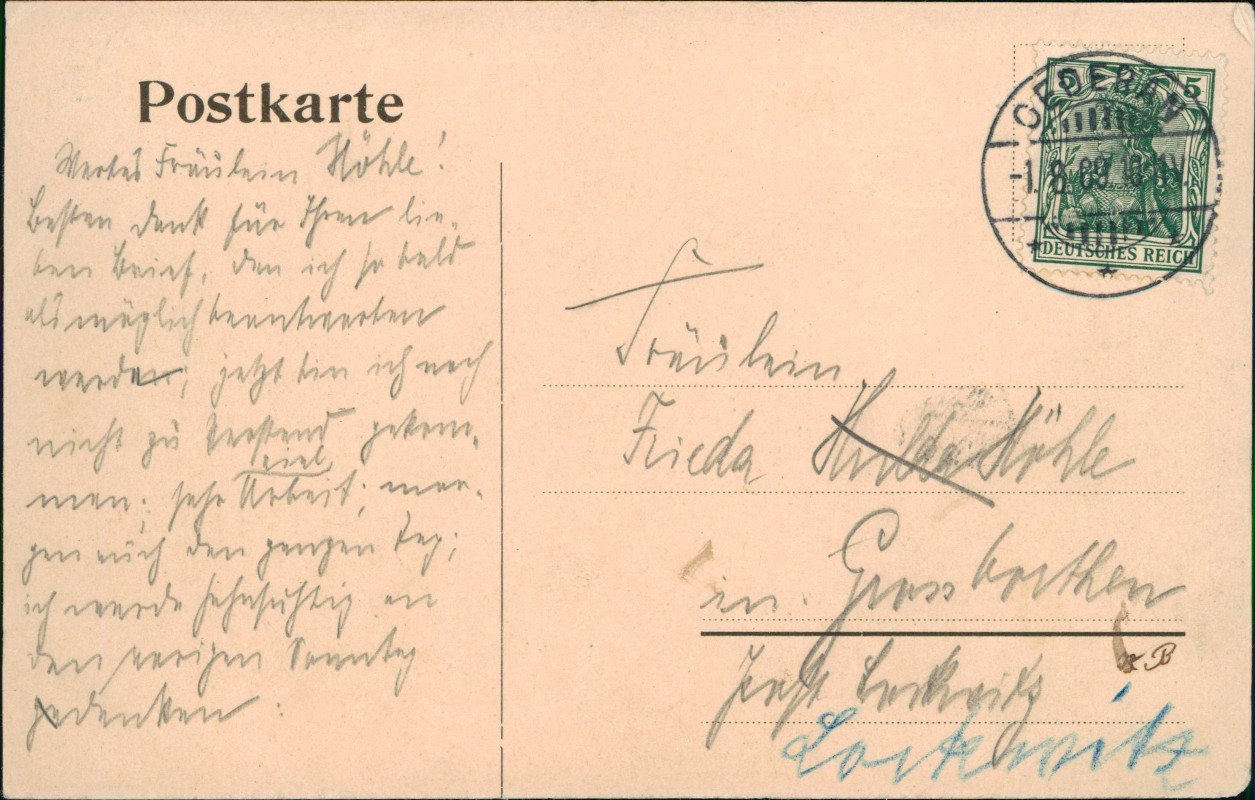 Postkarte
Wertes Fräulein Höhle!
Besten Dank für Ihren lie-
ben Brief, den ich so bald
als möglich beantworten
werde; jetzt bin ich noch
nicht zu gekom-
men; sehr viel Arbeit; mor-
gen auch den ganzen Tag;
ich werde sehnsüchtig an
den vorigen Sonntag
denken.
OEDERAN
-1.8.09. 10-11V.
5 5
DEUTSCHES REICH
Fräulein
Frieda Hulda Höhle
in Gross borthen
Post Lockwitz
Lockwitz
B